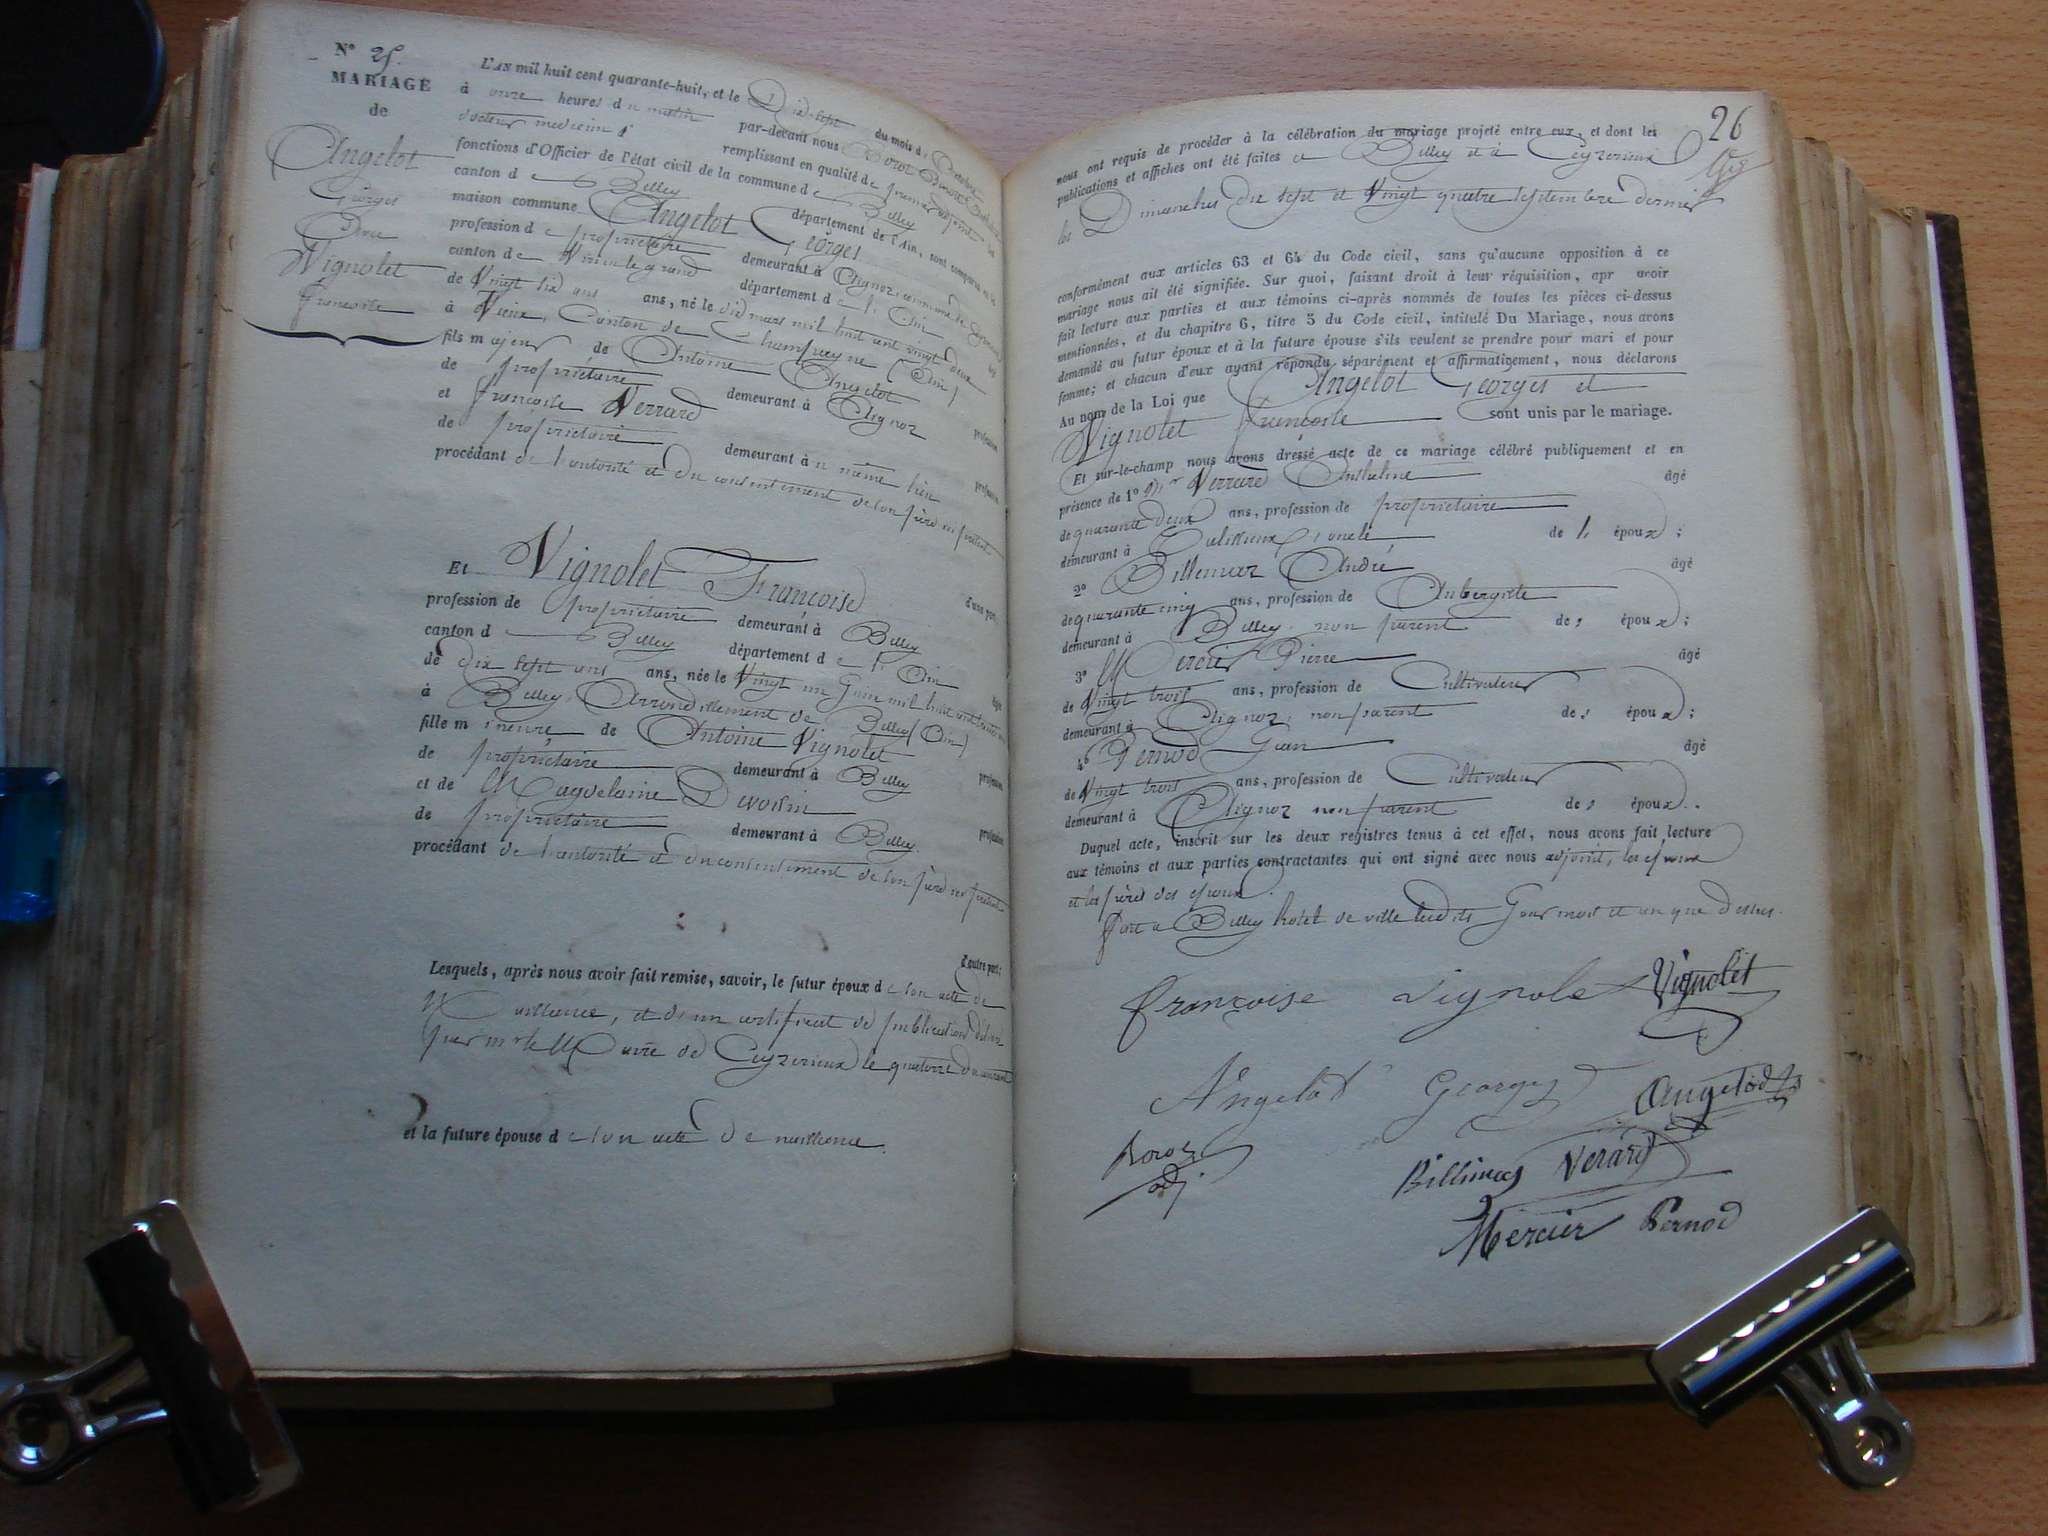 N° 25.
MARIAGE
de
Angelot
Georges
Avec
Vignolet
francoise
L'AN mil huit cent quarante-huit, et le Dix sept du mois d'Octobre
à onze heures du matin par-devant nous Bovet
docteur medecin remplissant en qualité de premier adjoint les
fonctions d'Officier de l'état civil de la commune de Belley
canton de Belley département de l'Ain, sont comparus en la
maison commune Angelot Georges
profession de propriétaire demeurant à Aignoz commune de Ceyzerieux
canton de Virieu le grand département de l'Ain
de Vingt six ans ans, né le dix mars mil huit cent vingt deux
à Vieux, Canton de Champagne (Ain)
fils majeur de Antoine Angelot profession
de propriétaire demeurant à Aignoz
et francoise Verrard profession
de propriétaire demeurant à u même lieu
procédant de l'autorité et du consentement de son père ici présent
d'une part;
Et Vignolet Francoise
profession de propriétaire demeurant à Belley
canton d Belley département de l'Ain
de dix sept ans ans, née le Vingt un Juin mil huit cent
à Belley, Arrondissement de Belley (Ain)
fille mineure de Antoine Vignolet profession
de propriétaire demeurant à Belley
et de Magdelaine Devoisin profession
de propriétaire demeurant à Belley.
procédant de l'autorité et du consentement de son père ici présent
d'autre part;
Lesquels, après nous avoir fait remise, savoir, le futur époux de son acte de
Naissance, et d'un certificat de publications délivré
par mr le Maire de Ceyzerieux le quatorze du courant
et la future épouse de son acte de naissance.
26
nous ont requis de procéder à la célébration du mariage projeté entre eux, et dont les
publications et affiches ont été faites a Belley et à Ceyzerieux
les Dimanches dix sept et Vingt quatre septembre dernier
conformément aux articles 63 et 64 du Code civil, sans qu'aucune opposition à ce
mariage nous ait été signifiée. Sur quoi, faisant droit à leur réquisition, apr avoir
fait lecture aux parties et aux témoins ci-après nommés de toutes les pièces ci-dessus
mentionnées, et du chapitre 6, titre 5 du Code civil, intitulé Du Mariage, nous avons
demandé au futur époux et à la future épouse s'ils veulent se prendre pour mari et pour
femme; et chacun d'eux ayant répondu séparément et affirmativement, nous déclarons
Au nom de la Loi que Angelot Georges et
Vignolet francoise sont unis par le mariage.
Et sur-le-champ nous avons dressé acte de ce mariage célébré publiquement et en
présence de 1° Mr Verrard Anthelme âgé
de quarante deux ans, profession de propriétaire
demeurant à oncle de l' époux;
2° Billemaz André âgé
de quarante cinq ans, profession de Aubergiste
demeurant à Belley, non parent de s époux;
3° Mercier Pierre âgé
de Vingt trois ans, profession de Cultivateur
demeurant à Aignoz, non parent de s époux;
4° Pernod Jean âgé
de Vingt trois ans, profession de Cultivateur
demeurant à Aignoz non parent de s époux.
Duquel acte, inscrit sur les deux registres tenus à cet effet, nous avons fait lecture
aux témoins et aux parties contractantes qui ont signé avec nous adjoint, les époux
et les pères des époux.
Fait a Belley hotel de ville lesdits Jour mois et an que dessus.
françoise vignolet Vignolet
Angelod George Angelod
Bovet Billimas Verard
adj.
Mercier Pernod